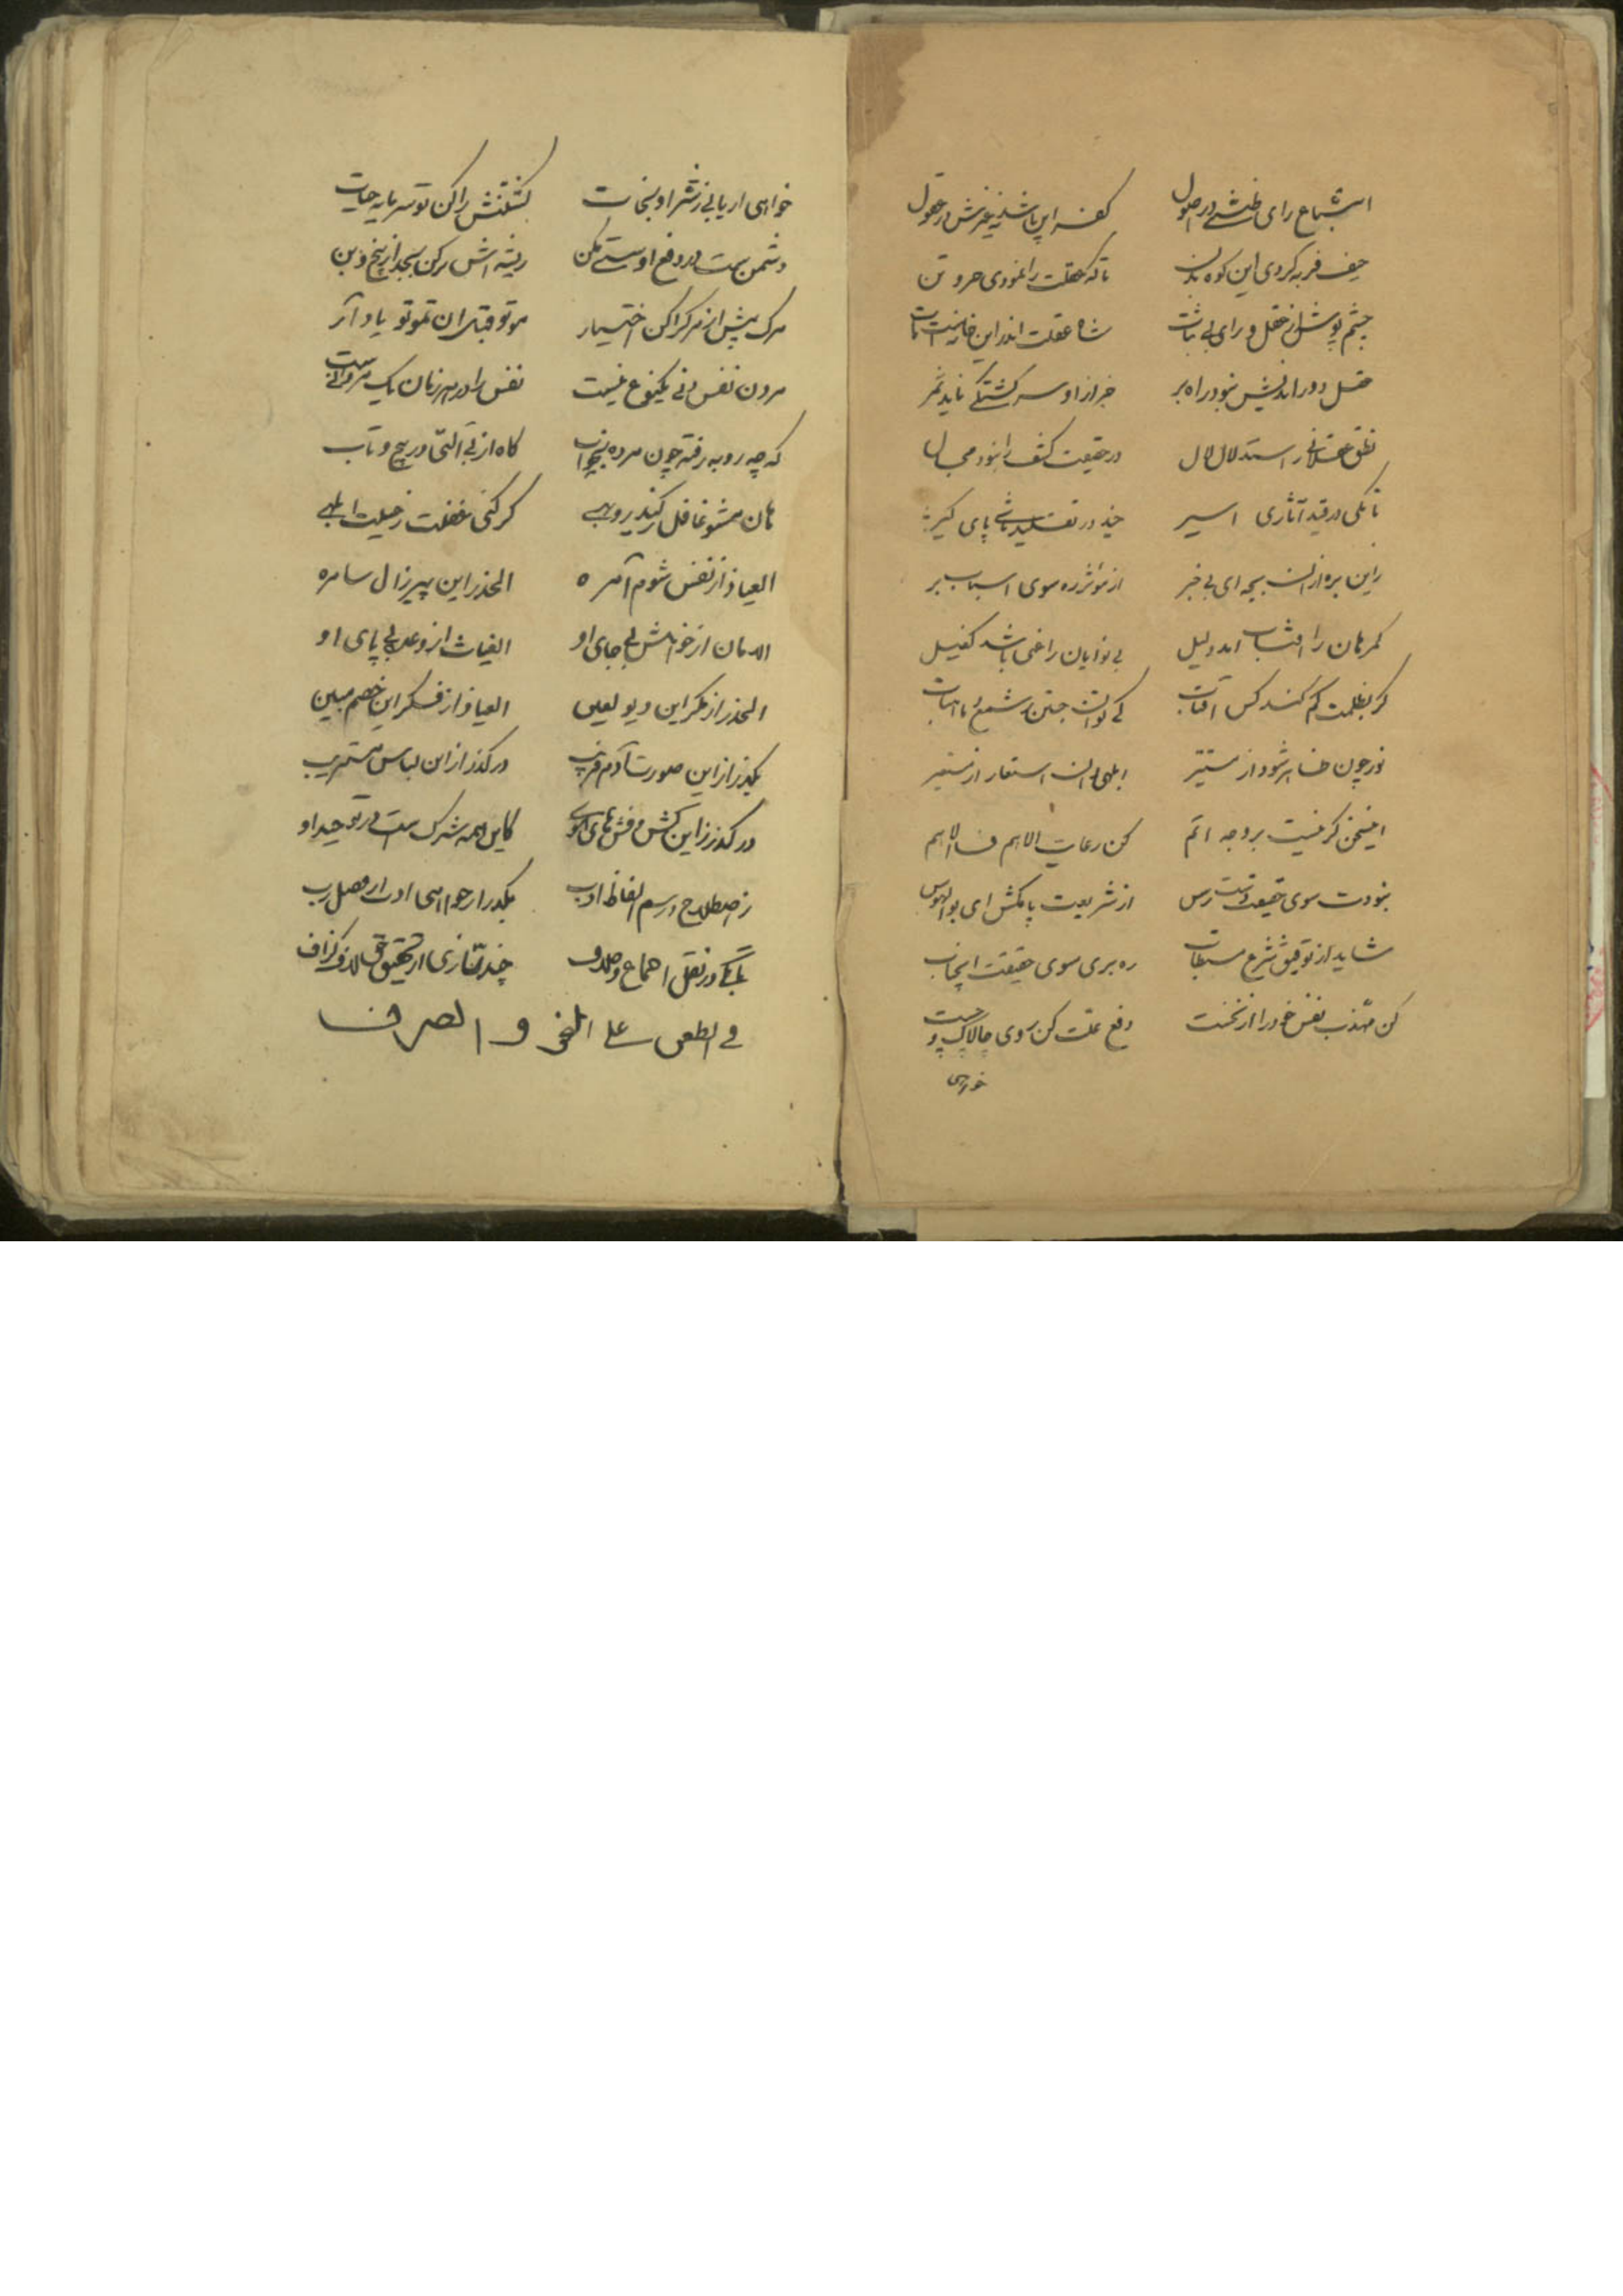 اتباع رای ظنی در اصول کفر اینها شد نه غیرش در عقول
حیف فربه کردی این کوه بدن تا که عقلت را نمودی حرو تن
چشم پوش از عقل و رای بی ثبات شاه عقلت اندر این خانست مات
عقل دور اندیش نبود راه بر خبر از او سرگشتگی ناید ثمر
نطق عقلانی ز استدلال لال در حقیقت کشف را نبود مجال
تا بکی در قید آثاری اسیر چند در تقلید باشی پای گیر
از مؤثر ره سوی اسباب بر
گمرهان را آفتاب آمد دلیل بی نوایان را غنی باشد کفیل
گر بظلمت گم کند کس آفتاب کی توان جستن بشمع ماهتاب
نور چون ظاهر شود از مستنیر ابلهی دان
اینسخن گر نیست بر وجه اتم کن رعایت الاهم فالاهم
نبودت سوی حقیقت دسترس از شریعت پا مکش ای بوالهوس
شاید از توفیق شرع مستطاب ره بری سوی حقیقت اینجناب
کن مهذب نفس خود را از نخست دفع علت کن روی چالاک و چست
خواهی
خواهی ار یابی ز شر او نجات کشتنش را کن تو سرمایه حیات
دشمن است در دفع او سستی مکن ریشه اش برکن بجد از بیخ و بن
مرگ پیش از مرگ را کن اختیار موتوا قبل ان تموتوا یاد آر
مردن نفس دنی یکنوع نیست نفس را در هر زمان یک مردنیست
گه چو روبه رفته چون مرده بخواب گاه از بی آلتی در پیچ و تاب
هان مشو غافل ز کید روبهی گر کنی غفلت ز حیلت ابلهی
العیاذ از نفس شوم آمره الحذر زاین پیرزال ساحره
الامان از خواهش بیجای او الغیاث از وعده بی پای او
الحذر از مکر این دیو لعین العیاذ از فکر این خصم مبین
بگذر از این صورت آدم فریب درگذر از این لباس
درگذر زاین کش و فش های کاین همه شرک است در توحید او
ز اصطلاح و رسم الفاظ ادب بگذر ار خواهی
تا بکی در نقل اجماع و خلاف چند تازی از تحقیق حق لاف و گزاف
فی الطعن علی النحو و الصرف